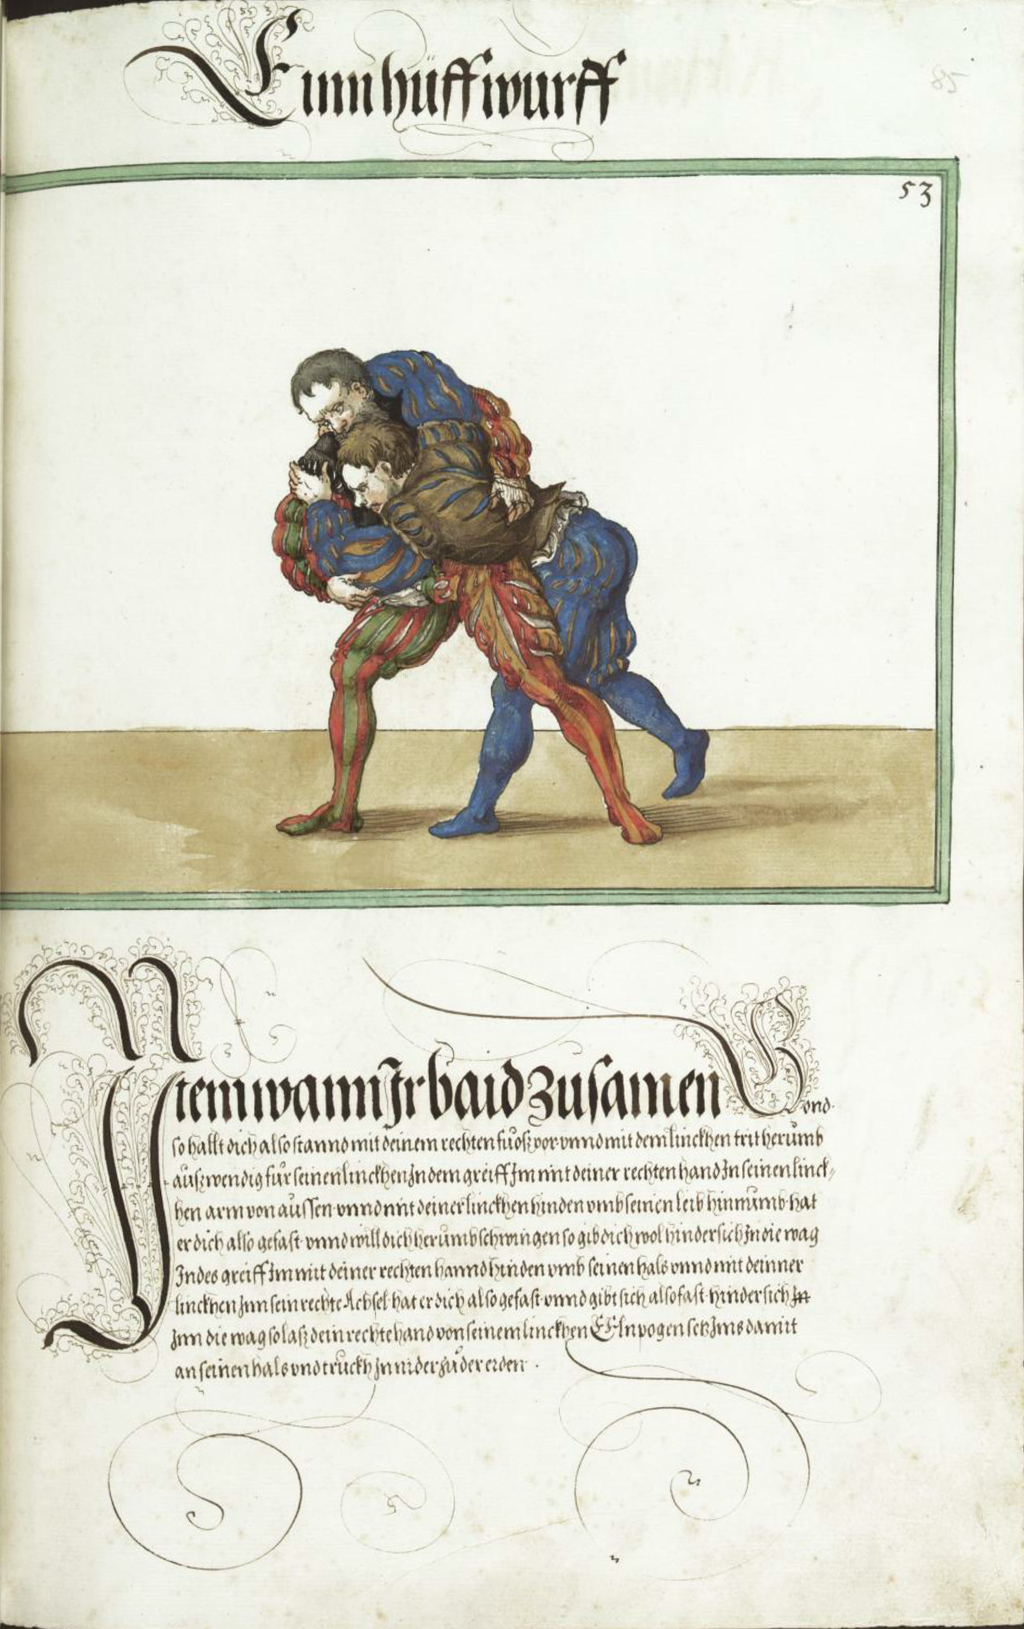 Einn hüffwurff
85
53
Item wann Ir baid zusamen Kond
so hallt dich also stannd mit deinem rechten fuoß vor vnnd mit dem linckhen trit herumb
außwendig für seinen linckhen Indem greiff Im mit deiner rechten hand In seinen linck-
hen arm von aussen vnnd mit deiner linckhen hinden vmb seinen leib hinnumb hat
er dich also gefast vnnd will dich herumb schwingen so gib dich wol hindersich In die wag
Indes greiff Im mit deiner rechten hannd hinden vmb seinen hals vnnd mit deinner
linckhen Inn sein rechte Achsel hat er dich also gefast vnnd gibt sich also fast hindersich
Inn die wag so laß dein rechte hand von seinem linckhen Elnpogen setz Ims damit
an seinen hals vnd truckh In nider zu der erden.